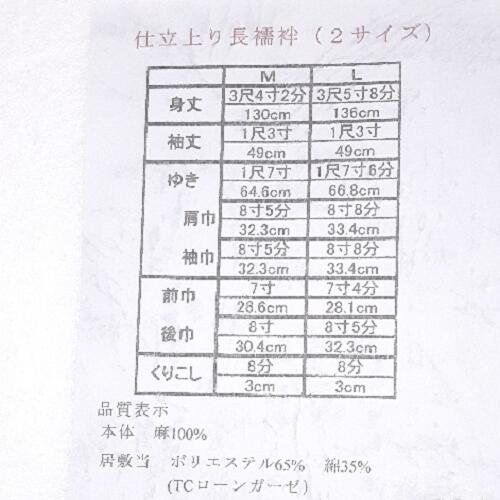 仕立上り長襦袢(2サイズ)
M L
身丈 3尺4寸2分 3尺5寸8分
130cm 136cm
袖丈 1尺3寸 1尺3寸
49cm 49cm
ゆき 1尺7寸 1尺7寸6分
64.6cm 66.8cm
肩巾 8寸5分 8寸8分
32.3cm 33.4cm
袖巾 8寸5分 8寸8分
32.3cm 33.4cm
前巾 7寸 7寸4分
26.6cm 28.1cm
後巾 8寸 8寸5分
30.4cm 32.3cm
くりこし 8分 8分
3cm 3cm
品質表示
本体 麻100%
居敷当 ポリエステル65% 綿35%
(TCローンガーゼ)